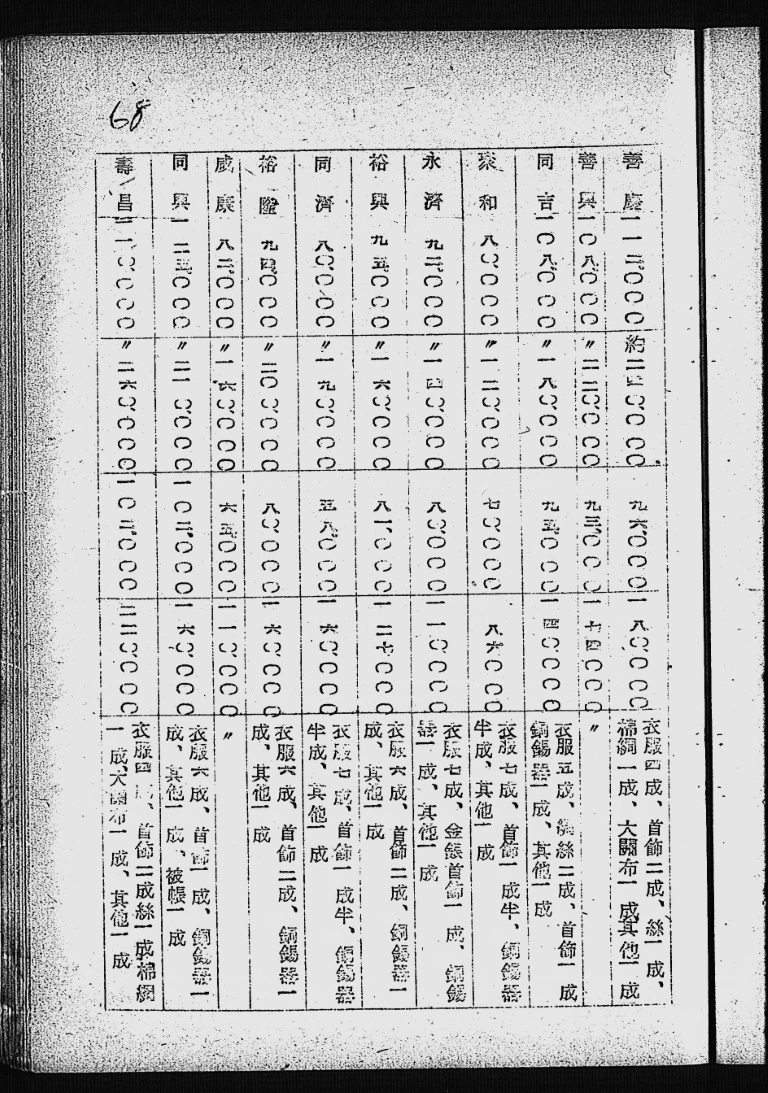 68
善慶 一一二、〇〇〇 約二四〇、〇〇〇 九六、〇〇〇 一八〇、〇〇〇 衣服四成、首飾二成、絲一成、
棉綢一成、大關布一成其他一成
善興 一〇八、〇〇〇 〃二二〇、〇〇〇 九三、〇〇〇 一七四、〇〇〇 〃
同吉 一〇八、〇〇〇 〃一八〇、〇〇〇 九五、〇〇〇 一四〇、〇〇〇 衣服五成、綢絲二成、首飾一成
銅錫器一成、其他一成
聚和 八〇、〇〇〇 〃一二〇、〇〇〇 七〇、〇〇〇 八六、〇〇〇 衣服七成、首飾一成半、銅錫器
半成、其他一成
永濟 九二、〇〇〇 〃一四〇、〇〇〇 八〇、〇〇〇 一一〇、〇〇〇 衣服七成、金銀首飾一成、銅錫
器一成、其他一成
裕興 九五、〇〇〇 〃一六〇、〇〇〇 八一、〇〇〇 一二七、〇〇〇 衣服六成、首飾二成、銅錫器一
成、其他一成
同濟 八〇、〇〇〇 〃一九〇、〇〇〇 五八、〇〇〇 一六〇、〇〇〇 衣服七成、首飾一成半、銅錫器
半成、其他一成
裕隆 九四、〇〇〇 〃二〇〇、〇〇〇 八〇、〇〇〇 一六〇、〇〇〇 衣服六成、首飾二成、銅錫器一
成、其他一成
咸康 八二、〇〇〇 〃一六〇、〇〇〇 六五、〇〇〇 一一〇、〇〇〇 〃
同興 一二五、〇〇〇 〃二一〇、〇〇〇 一〇二、〇〇〇 一六〇、〇〇〇 衣服六成、首飾一成、銅錫器一
成、其他一成、被帳一成
壽昌 一一〇、〇〇〇 〃二六〇、〇〇〇 一〇二、〇〇〇 二二〇、〇〇〇 衣服四成、首飾二成絲一成棉綢
一成、大關布一成、其他一成